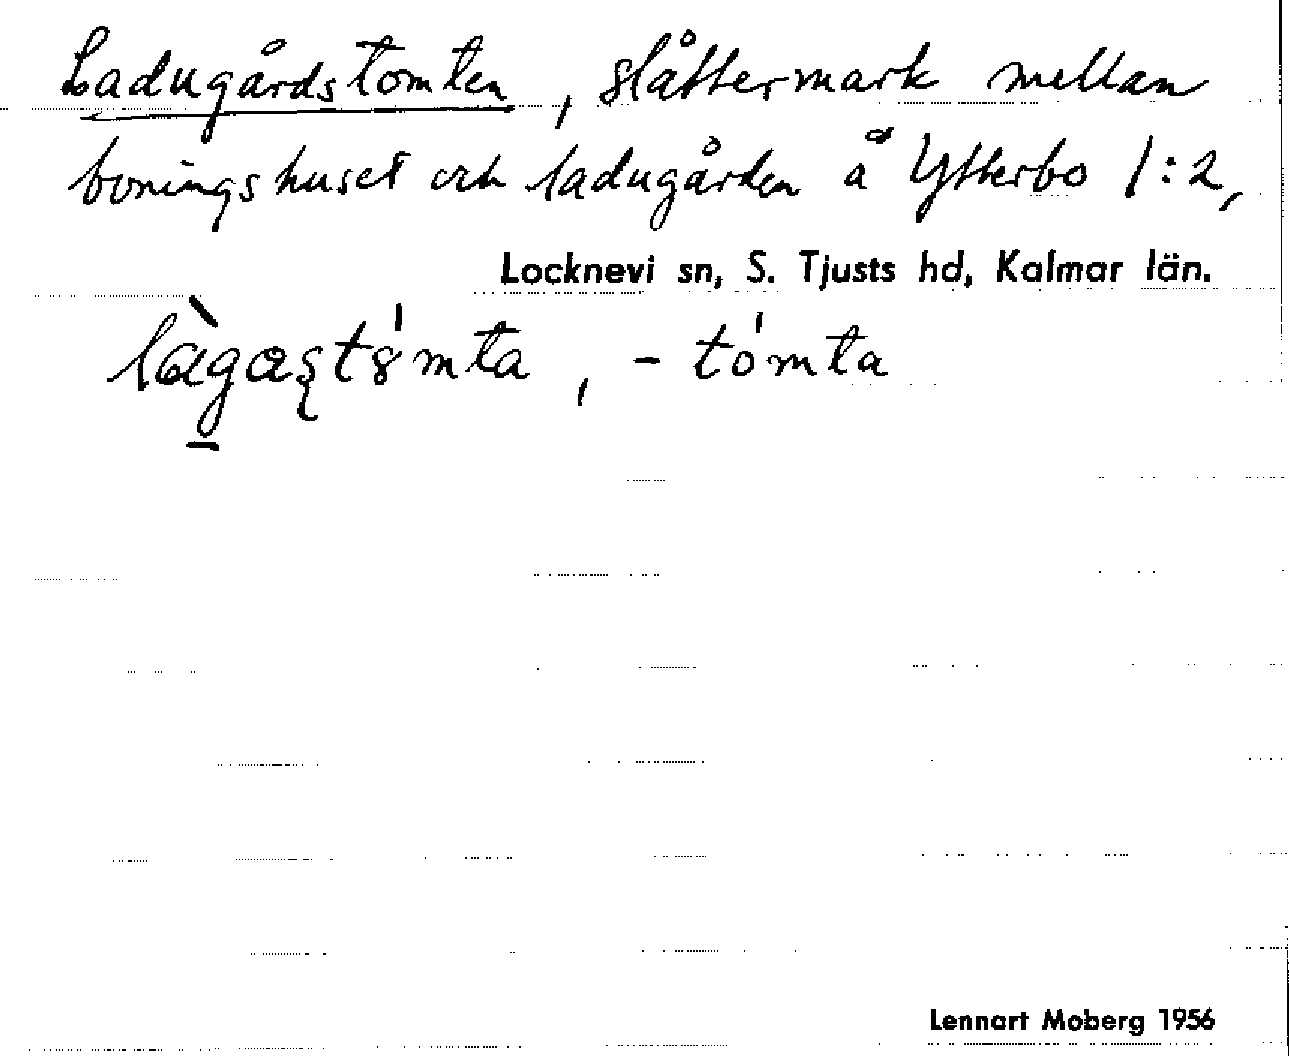 Ladugårdstomten, slåttermark mellan
boningshuset och ladugården å Ytterbo 1:2,
Locknevi sn, S. Tjusts hd, Kalmar län.
, - tómta
Lennart Moberg 1956